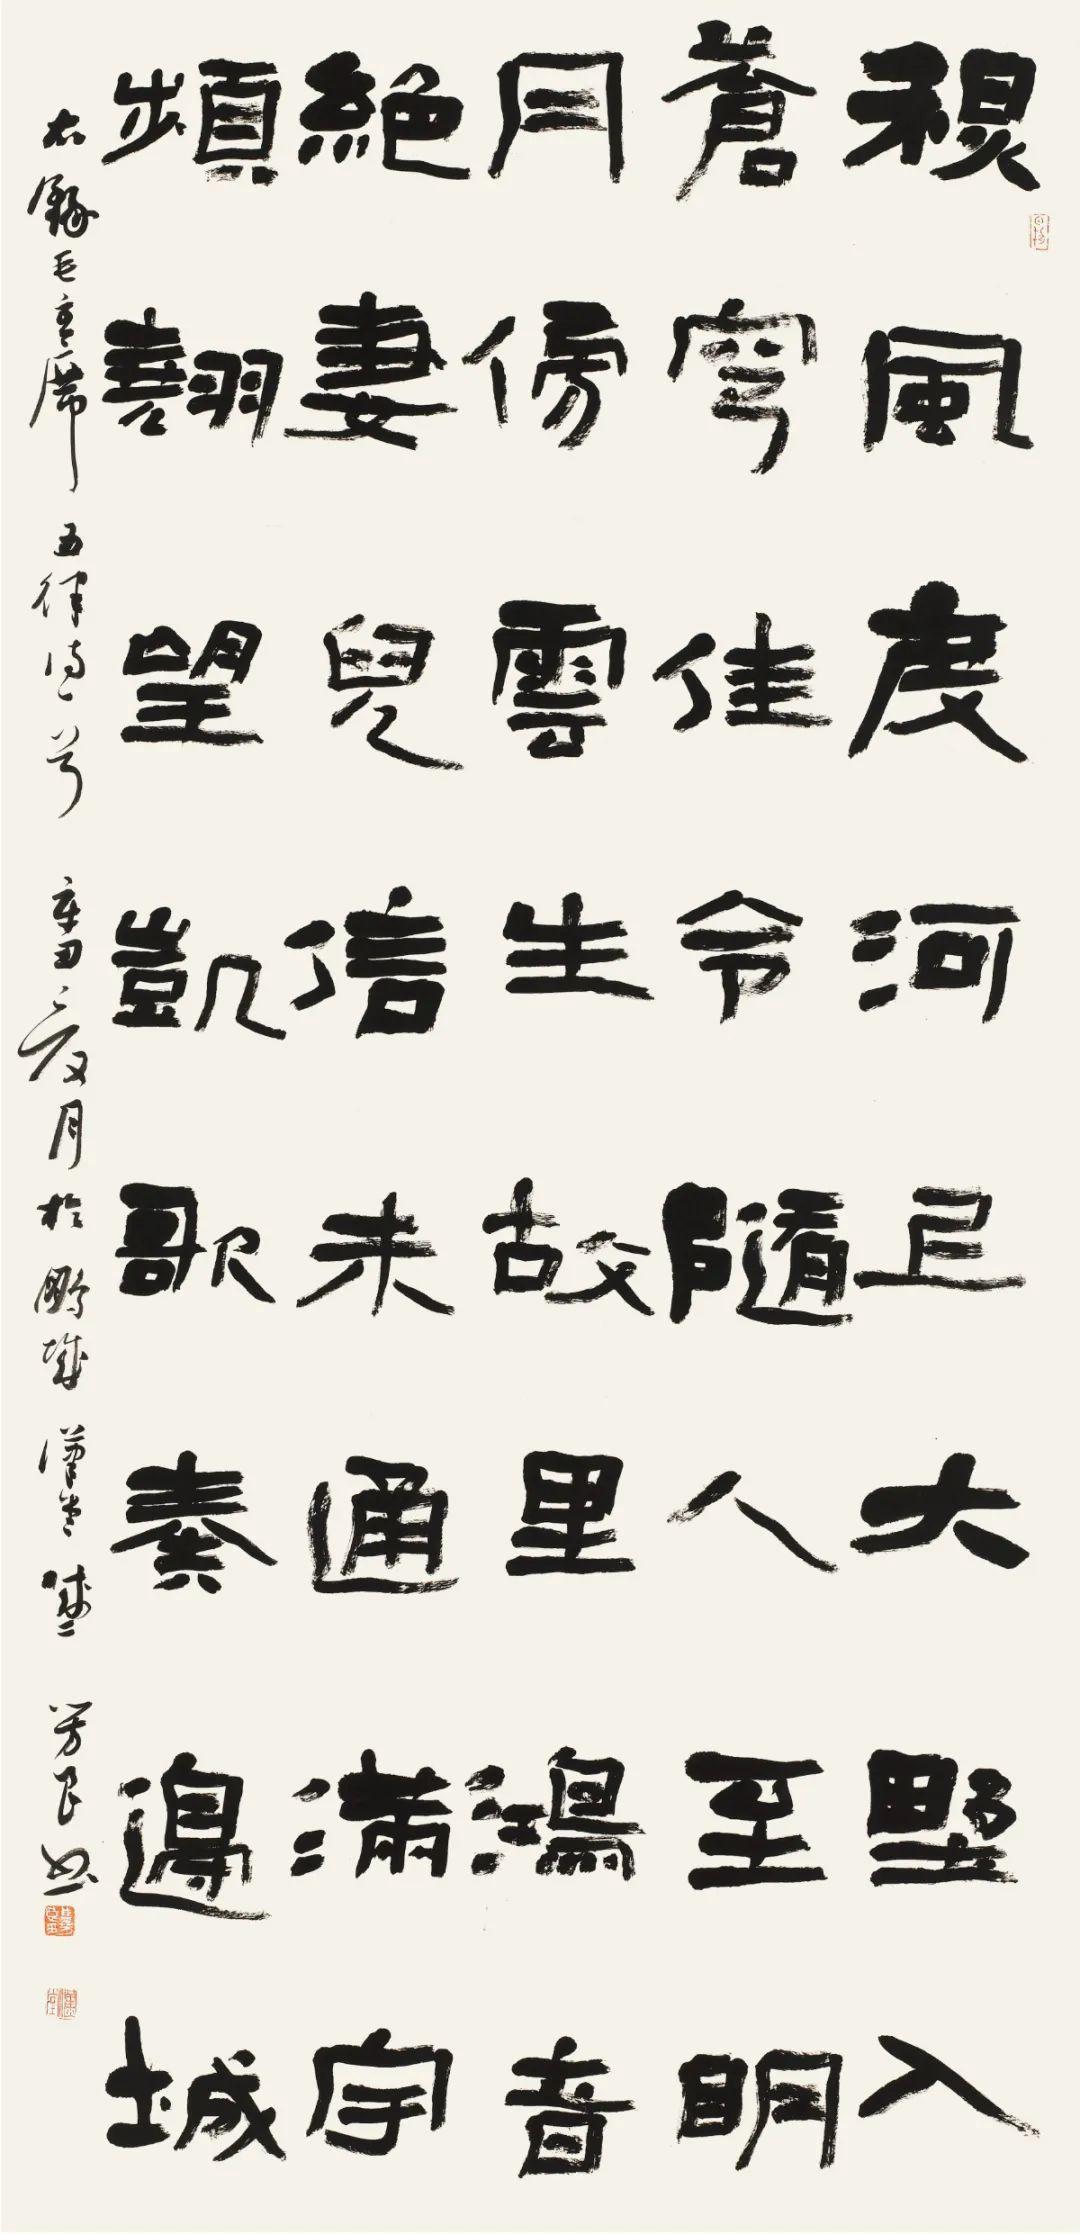 秋風度河上大野入
蒼穹佳令隨人至明
月傍雲生故里鴻音
絕妻兒信未通滿宇
頻翹望凱歌奏邊城
右錄毛主席五律詩一首辛丑之夏月於鵬城漢堂芳書